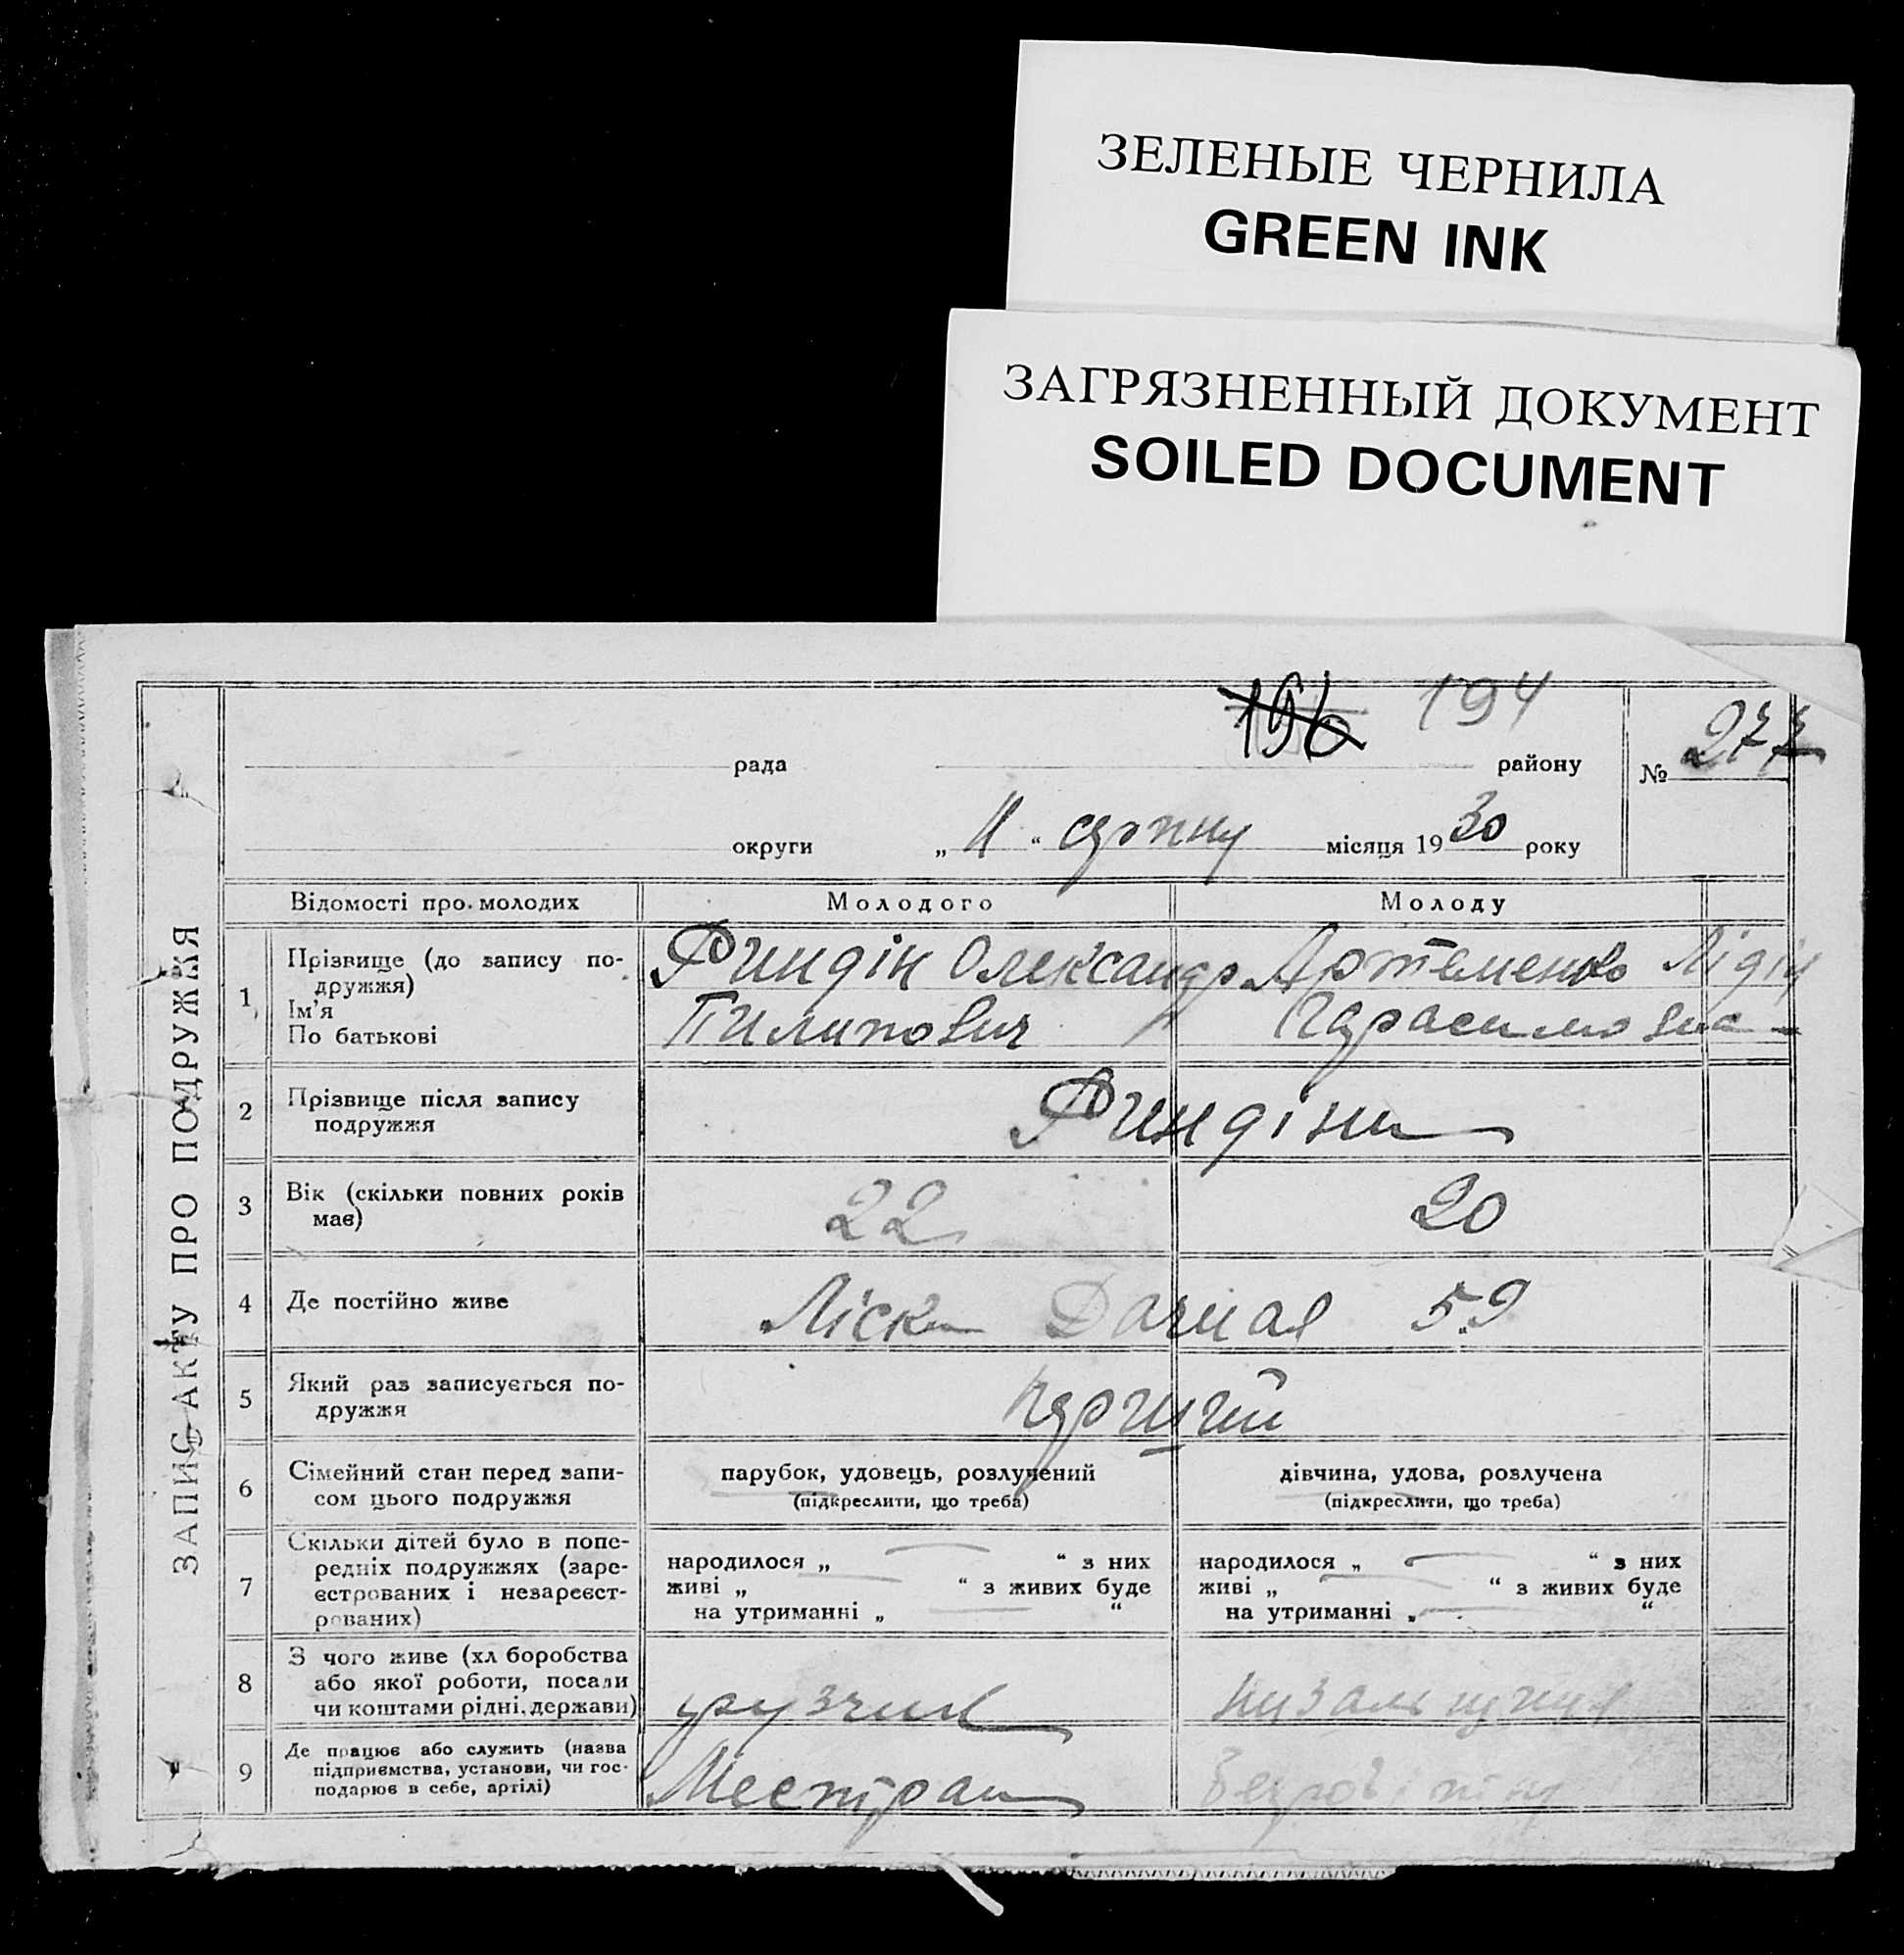 ЗЕЛЕНЫЕ ЧЕРНИЛА
GREEN INK
ЗАГРЯЗНЕННЫЙ ДОКУМЕНТ
SOILED DOCUMENT
ЗАПИС АКТУ ПРО ПОДРУЖЖЯ
196 194
рада району № 277
округи „ 11 “ серпня місяця 1930 року
Відомості про молодих Молодого Молоду
1 Прізвище (до запису по-
дружжя)
Ім'я
По батькові
Риндін Олександр
Пилипович
Артеменко Лідія
Герасимовна
2 Прізвище після запису
подружжя
Риндіни
3 Вік (скільки повних років
має)
22 20
4 Де постійно живе Ліски Дачная 59
5 Який раз записується по-
дружжя
перший
6 Сімейний стан перед запи-
сом цього подружжя
парубок, удовець, розлучений
(підкреслити, що треба)
дівчина, удова, розлучена
(підкреслити, що треба)
7 Скільки дітей було в попе-
редніх подружжях (заре-
єстрованих і незареєст-
рованих)
народилося „ “ з них
живі „ “ з живих буде
на утриманні „ “
народилося „ “ з них
живі „ “ з живих буде
на утриманні „ “
8 З чого живе (хліборобства
або якої роботи, посади
чи коштами рідні, держави)
грузчик
9 Де працює або служить (назва
підприємства, установи, чи гос-
подарює в себе, артілі)